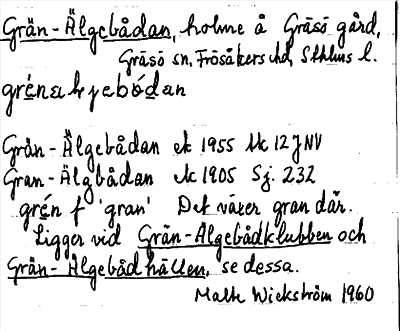 Grän-Älgebådan, holme å Gräsö gård,
Gräsö sn, Frösåkers hd, Sthlms l.
grénæljebódan
Grän-Älgebådan ek 1955 bl 12J NV
Gran-Älgbådan ek 1905 Sj. 232
grén f 'gran' Det växer gran där.
Ligger vid Grän-Älgebådklubben och
Grän-Älgebådhällen, se dessa.
Malte Wickström 1960